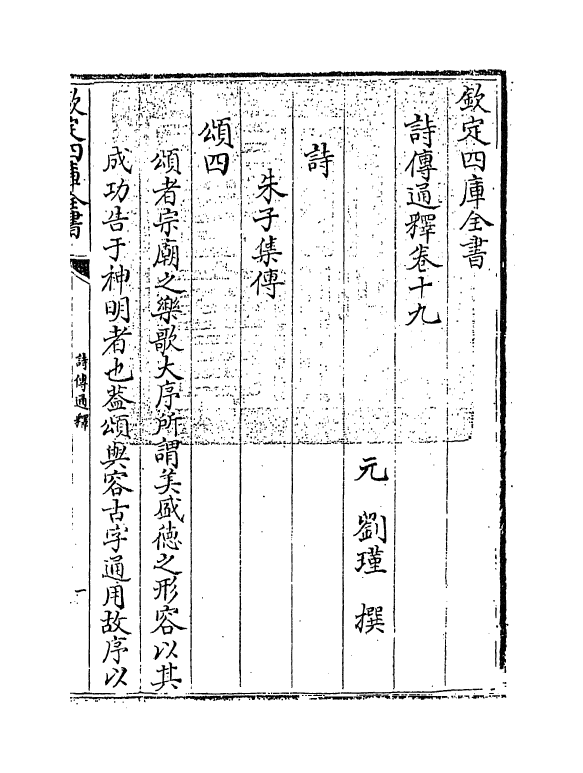 欽定四庫全書
詩傳通釋卷十九
元 劉瑾 撰
詩
朱子集傳
頌四
頌者宗廟之樂歌大序所謂美盛徳之形容以其
成功告于神明者也葢頌與容古字通用故序以
欽定四庫全書
詩傳通釋
一